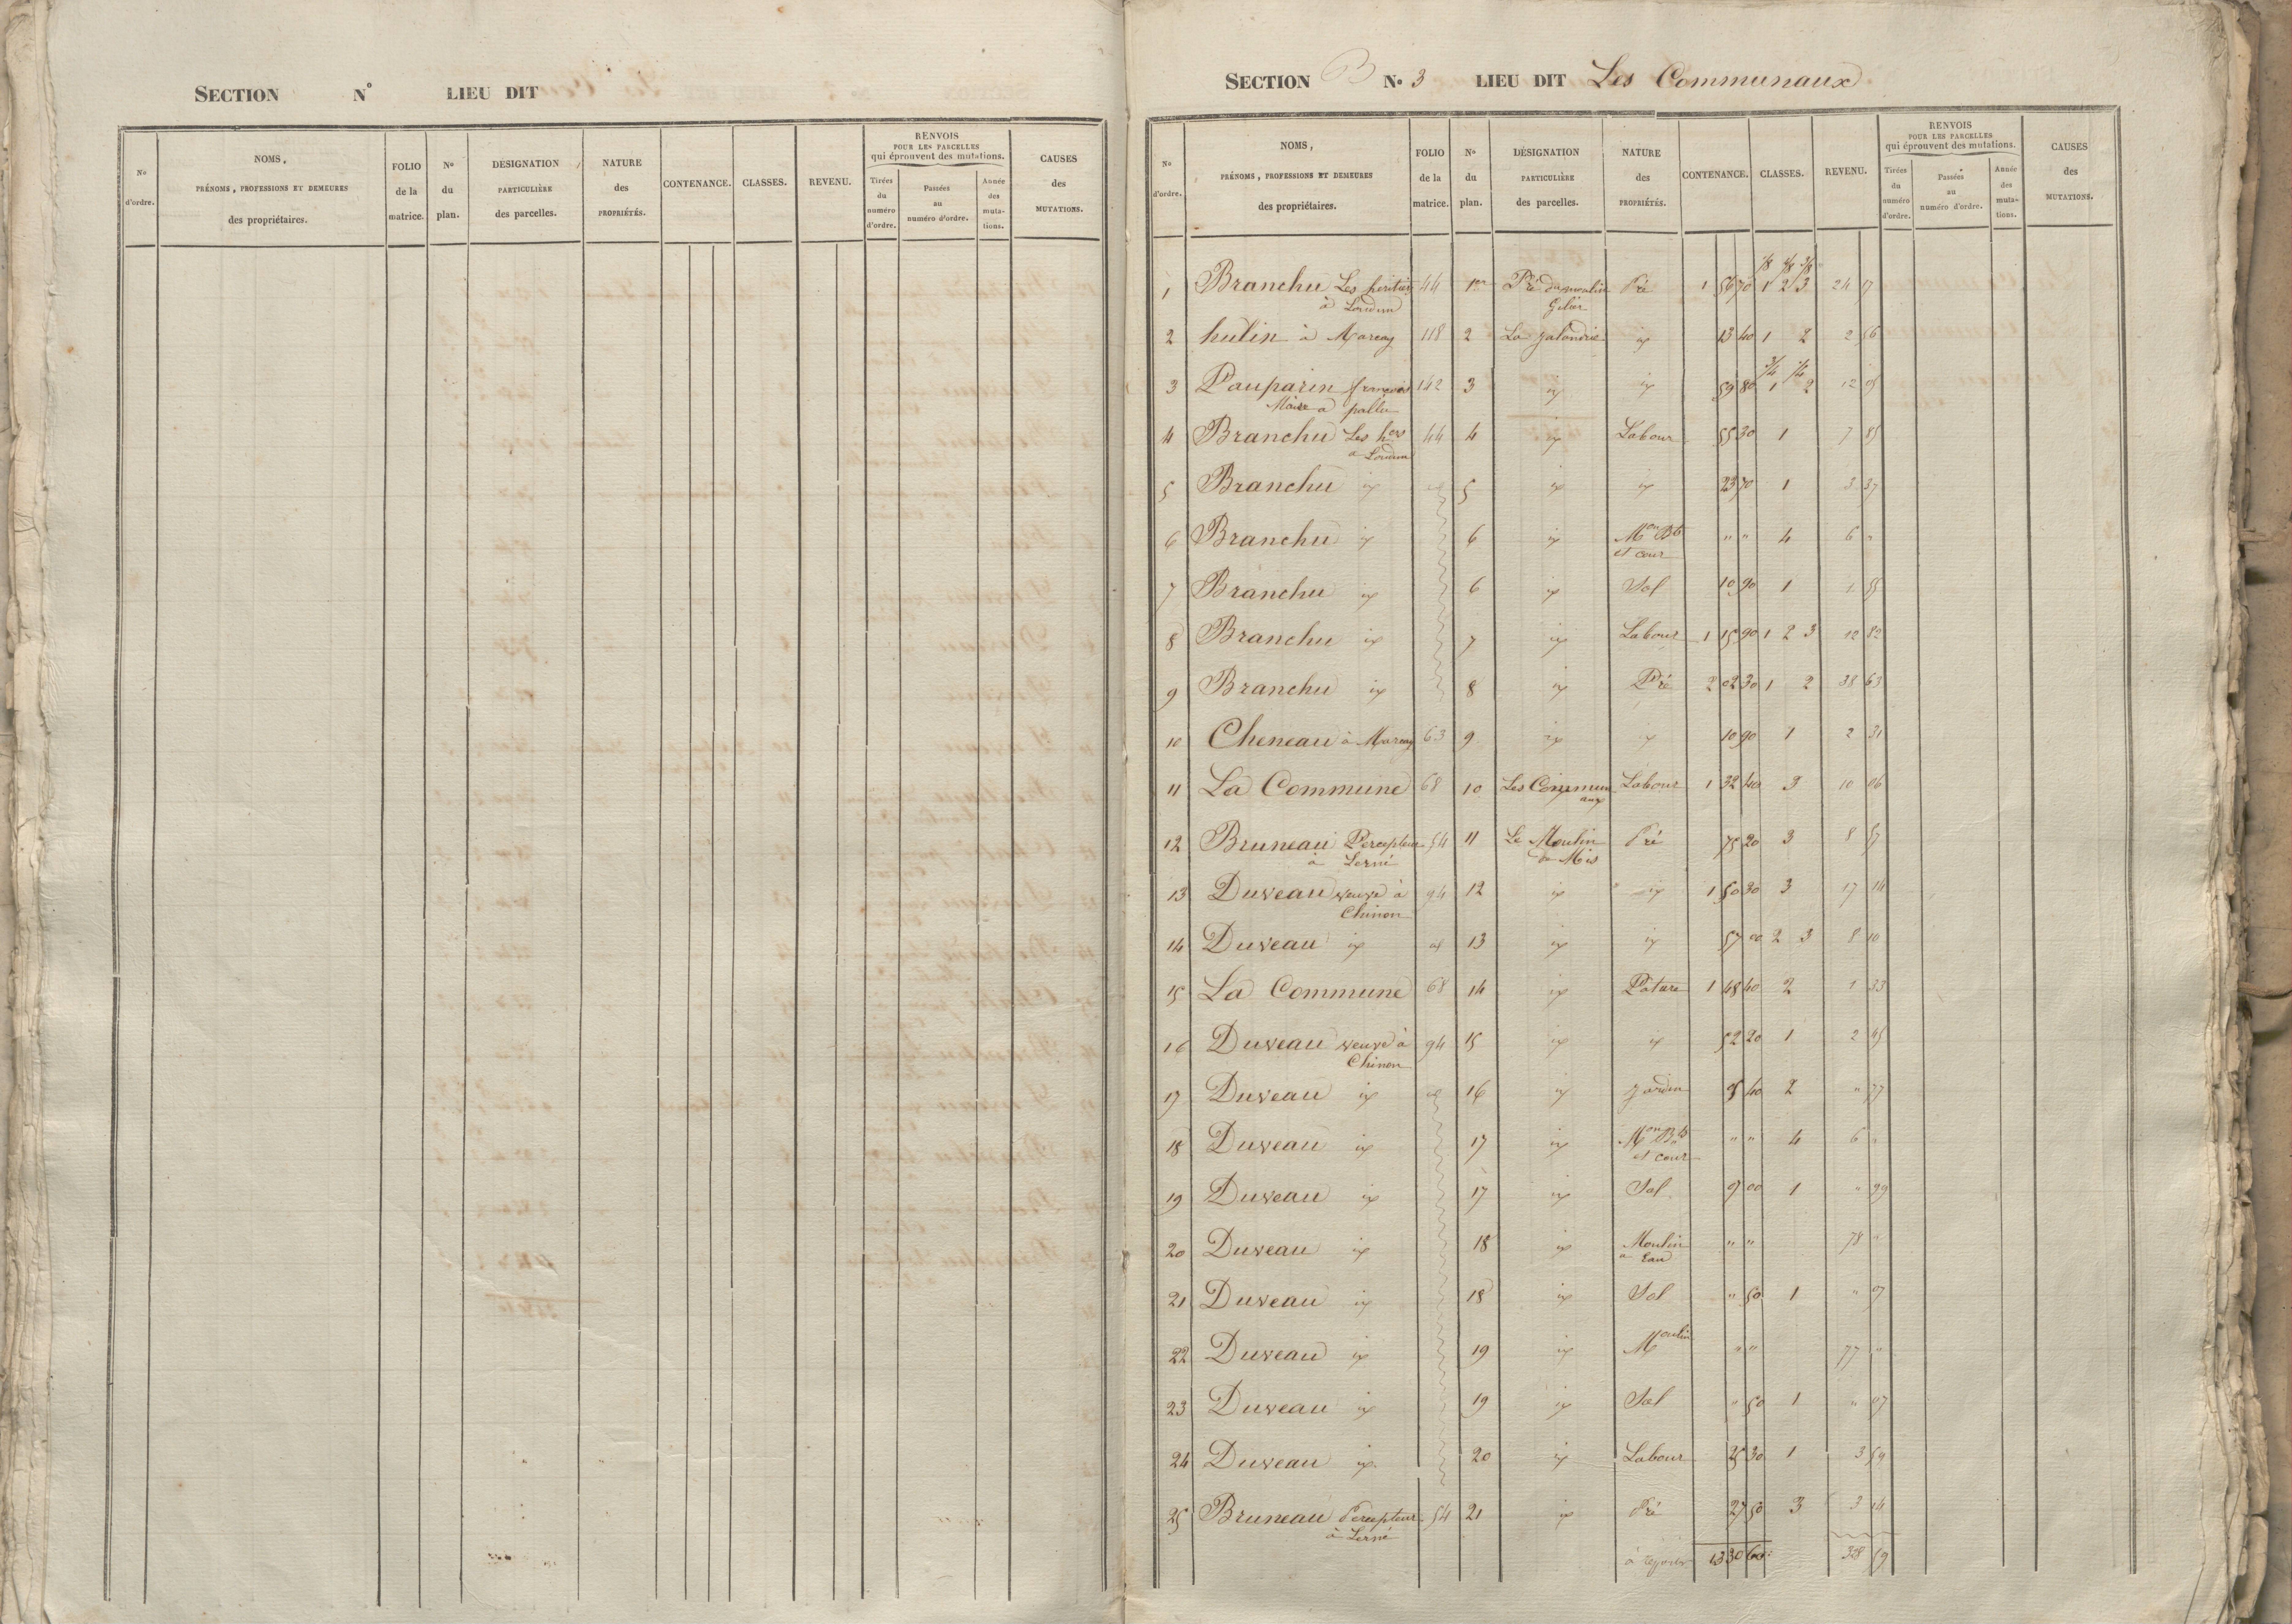 SECTION N° LIEU DIT
N° d'ordre.
NOMS, PRÉNOMS, PROFESSIONS ET DEMEURES des propriétaires.
FOLIO de la matrice.
N° du plan.
DESIGNATION PARTICULIÈRE des parcelles.
NATURE des PROPRIÉTÉS.
CONTENANCE.
CLASSES.
REVENU.
RENVOIS POUR LES PARCELLES qui éprouvent des mutations.
Tirées du numéro d'ordre.
Passées au numéro d'ordre.
Année des mutations.
CAUSES des MUTATIONS.
SECTION B N° 3 LIEU DIT Les Communaux
N° d'ordre.
NOMS, PRÉNOMS, PROFESSIONS ET DEMEURES des propriétaires.
FOLIO de la matrice.
N° du plan.
DÉSIGNATION PARTICULIÈRE des parcelles.
NATURE des PROPRIÉTÉS.
CONTENANCE.
CLASSES.
REVENU.
RENVOIS POUR LES PARCELLES qui éprouvent des mutations.
Tirées du numéro d'ordre.
Passées au numéro d'ordre.
Année des mutations.
CAUSES des MUTATIONS.
1 Branchu Les héritiers 44 1er Pré du moulin Pré 1 56 70 1 2 3 24 17
à Loudun
2 hulin à Marcay 118 2 La jalandrie id 13 40 1 2 2 56
3 Pauparin françois 142 3 id id 59 80 3/4 1 1/4 2 12 05
Maire a pallu
4 Branchu Les hers 44 4 id Labour 55 30 1 7 85
a Loudun
5 Branchu id id 5 id id 23 70 1 3 37
6 Branchu id 6 id Mon Bts " " 4 6 "
et cour
7 Branchu id 6 id Sol 10 90 1 1 55
8 Branchu id 7 id Labour 1 15 90 1 2 3 12 82
9 Branchu id 8 id Pré 2 02 30 1 2 38 63
10 Cheneau à Marcay 63 9 id id 10 90 1 2 31
11 La Commune 68 10 Les Communaux Labour 1 32 40 3 10 06
12 Bruneau Percepteur 54 11 Le Moulin Pré 75 20 3 8 57
à Lerné de Mis
13 Duveau veuve à 94 12 id id 1 50 30 3 17 14
Chinon
14 Duveau id id 13 id id 57 00 2 3 8 10
15 La Commune 68 14 id Pâture 1 48 40 2 1 33
16 Duveau veuve à 94 15 id id 52 20 1 2 45
Chinon
17 Duveau id id 16 id jardin 40 2 " 77
18 Duveau id 17 id Mon Bts " " 4 6 "
et cour
19 Duveau id 17 id Sol 9 00 1 " 99
20 Duveau id 18 id Moulin " " 78 "
a Eau
21 Duveau id 18 id Sol " 50 1 " 07
22 Duveau id 19 id Moulin " " 77 "
23 Duveau id 19 id Sol " 50 1 " 07
24 Duveau id 20 id Labour 25 30 1 3 59
25 Bruneau Percepteur 54 21 id Pré 27 50 3 3 14
à Lerné
à reporter 13 30 60 328 59